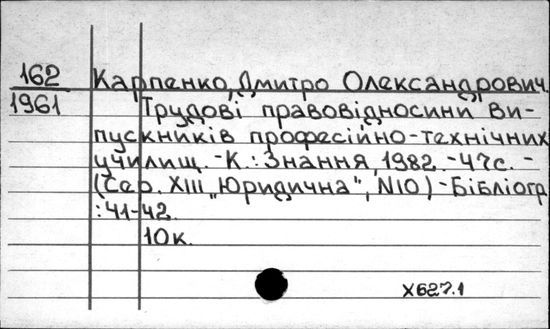 162 Карпенко, Дмитро Олександрович.
1961 Трудові правовідносини ви-
пускників професійно-технічних
училищ. -К.: Знання, 1982. -47с. -
(Сер. XIII „Юридична", N10) -Бібліогр.
: 41-42.
10к.
X627.1